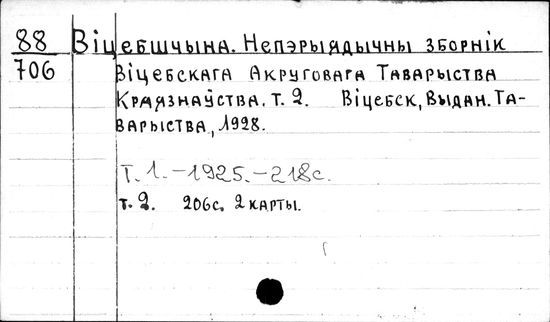 88 Віцебшчына. Непэрыядычны зборнік
706 Віцебскага Акруговага Таварыства
Краязнаўства. т. 2. Віцебск, Выдан. Та-
варыства, 1928.
Т. 1. – 1925. – 218с.
т. 2. 206с. 2 карты.